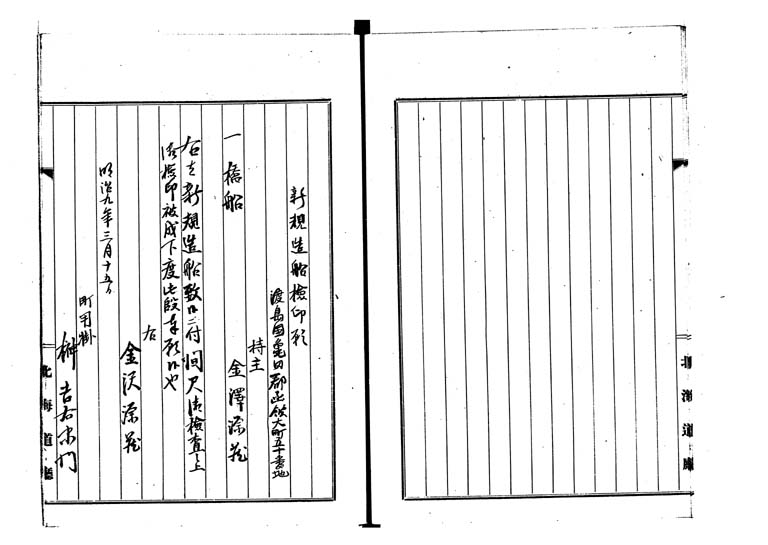 新規造船檢印願
渡島國亀田郡函館大町五十番地
持主
金澤源蔵
一 橋船
右之新規造船致候ニ付間尺御檢査之上
御檢印被成下度此段奉願候也
右
金沢源蔵
明治九年三月十五日
町用掛
榊吉右衛門
北海道廳
北海道廳